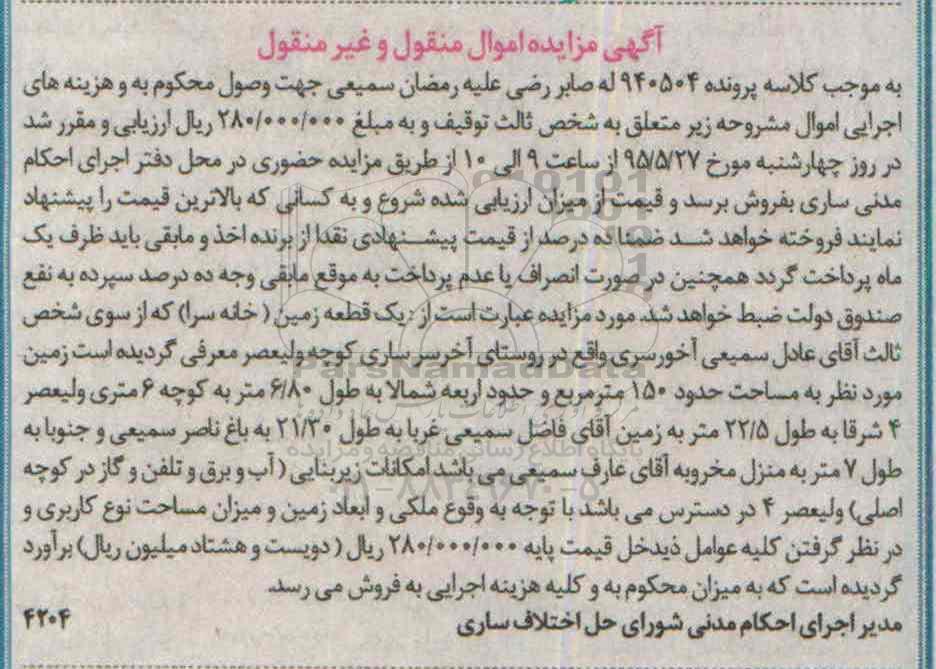 آگهی مزایده اموال منقول و غیر منقول
به موجب کلاسه پرونده ۹۴۰۵۰۴ له صابر رضی علیه رمضان سمیعی جهت وصول محکوم به و هزینه های
اجرایی اموال مشروحه زیر متعلق به شخص ثالث توقیف و به مبلغ ۲۸۰/۰۰۰/۰۰۰ ریال ارزیابی و مقرر شد
در روز چهارشنبه مورخ ۹۵/۵/۲۷ از ساعت ۹ الی ۱۰ از طریق مزایده حضوری در محل دفتر اجرای احکام
مدنی ساری بفروش برسد و قیمت از میزان ارزیابی شده شروع و به کسانی که بالاترین قیمت را پیشنهاد
نمایند فروخته خواهد شد ضمنا ده درصد از قیمت پیشنهادی نقدا از برنده اخذ و مابقی باید ظرف یک
ماه پرداخت گردد همچنین در صورت انصراف یا عدم پرداخت به موقع مابقی وجه ده درصد سپرده به نفع
صندوق دولت ضبط خواهد شد. مورد مزایده عبارت است از: یک قطعه زمین (خانه سرا) که از سوی شخص
ثالث آقای عادل سمیعی آخورسری واقع در روستای آخرسر ساری کوچه ولیعصر معرفی گردیده است زمین
مورد نظر به مساحت حدود ۱۵۰ مترمربع و حدود اربعه شمالا به طول ۶/۸۰ متر به کوچه ۶ متری ولیعصر
۴ شرقا به طول ۲۲/۵ متر به زمین آقای فاضل سمیعی غربا به طول ۲۱/۳۰ به باغ ناصر سمیعی و جنوبا به
طول ۷ متر به منزل مخروبه آقای عارف سمیعی می باشد امکانات زیربنایی (آب و برق و تلفن و گاز در کوچه
اصلی) ولیعصر ۴ در دسترس می باشد با توجه به وقوع ملکی و ابعاد زمین و میزان مساحت نوع کاربری و
در نظر گرفتن کلیه عوامل ذیدخل قیمت پایه ۲۸۰/۰۰۰/۰۰۰ ریال (دویست و هشتاد میلیون ریال) برآورد
گردیده است که به میزان محکوم به و کلیه هزینه اجرایی به فروش می رسد.
مدیر اجرای احکام مدنی شورای حل اختلاف ساری ۴۲۰۴
ParsNamadData
پایگاه اطلاع رسانی مناقصه و مزایده